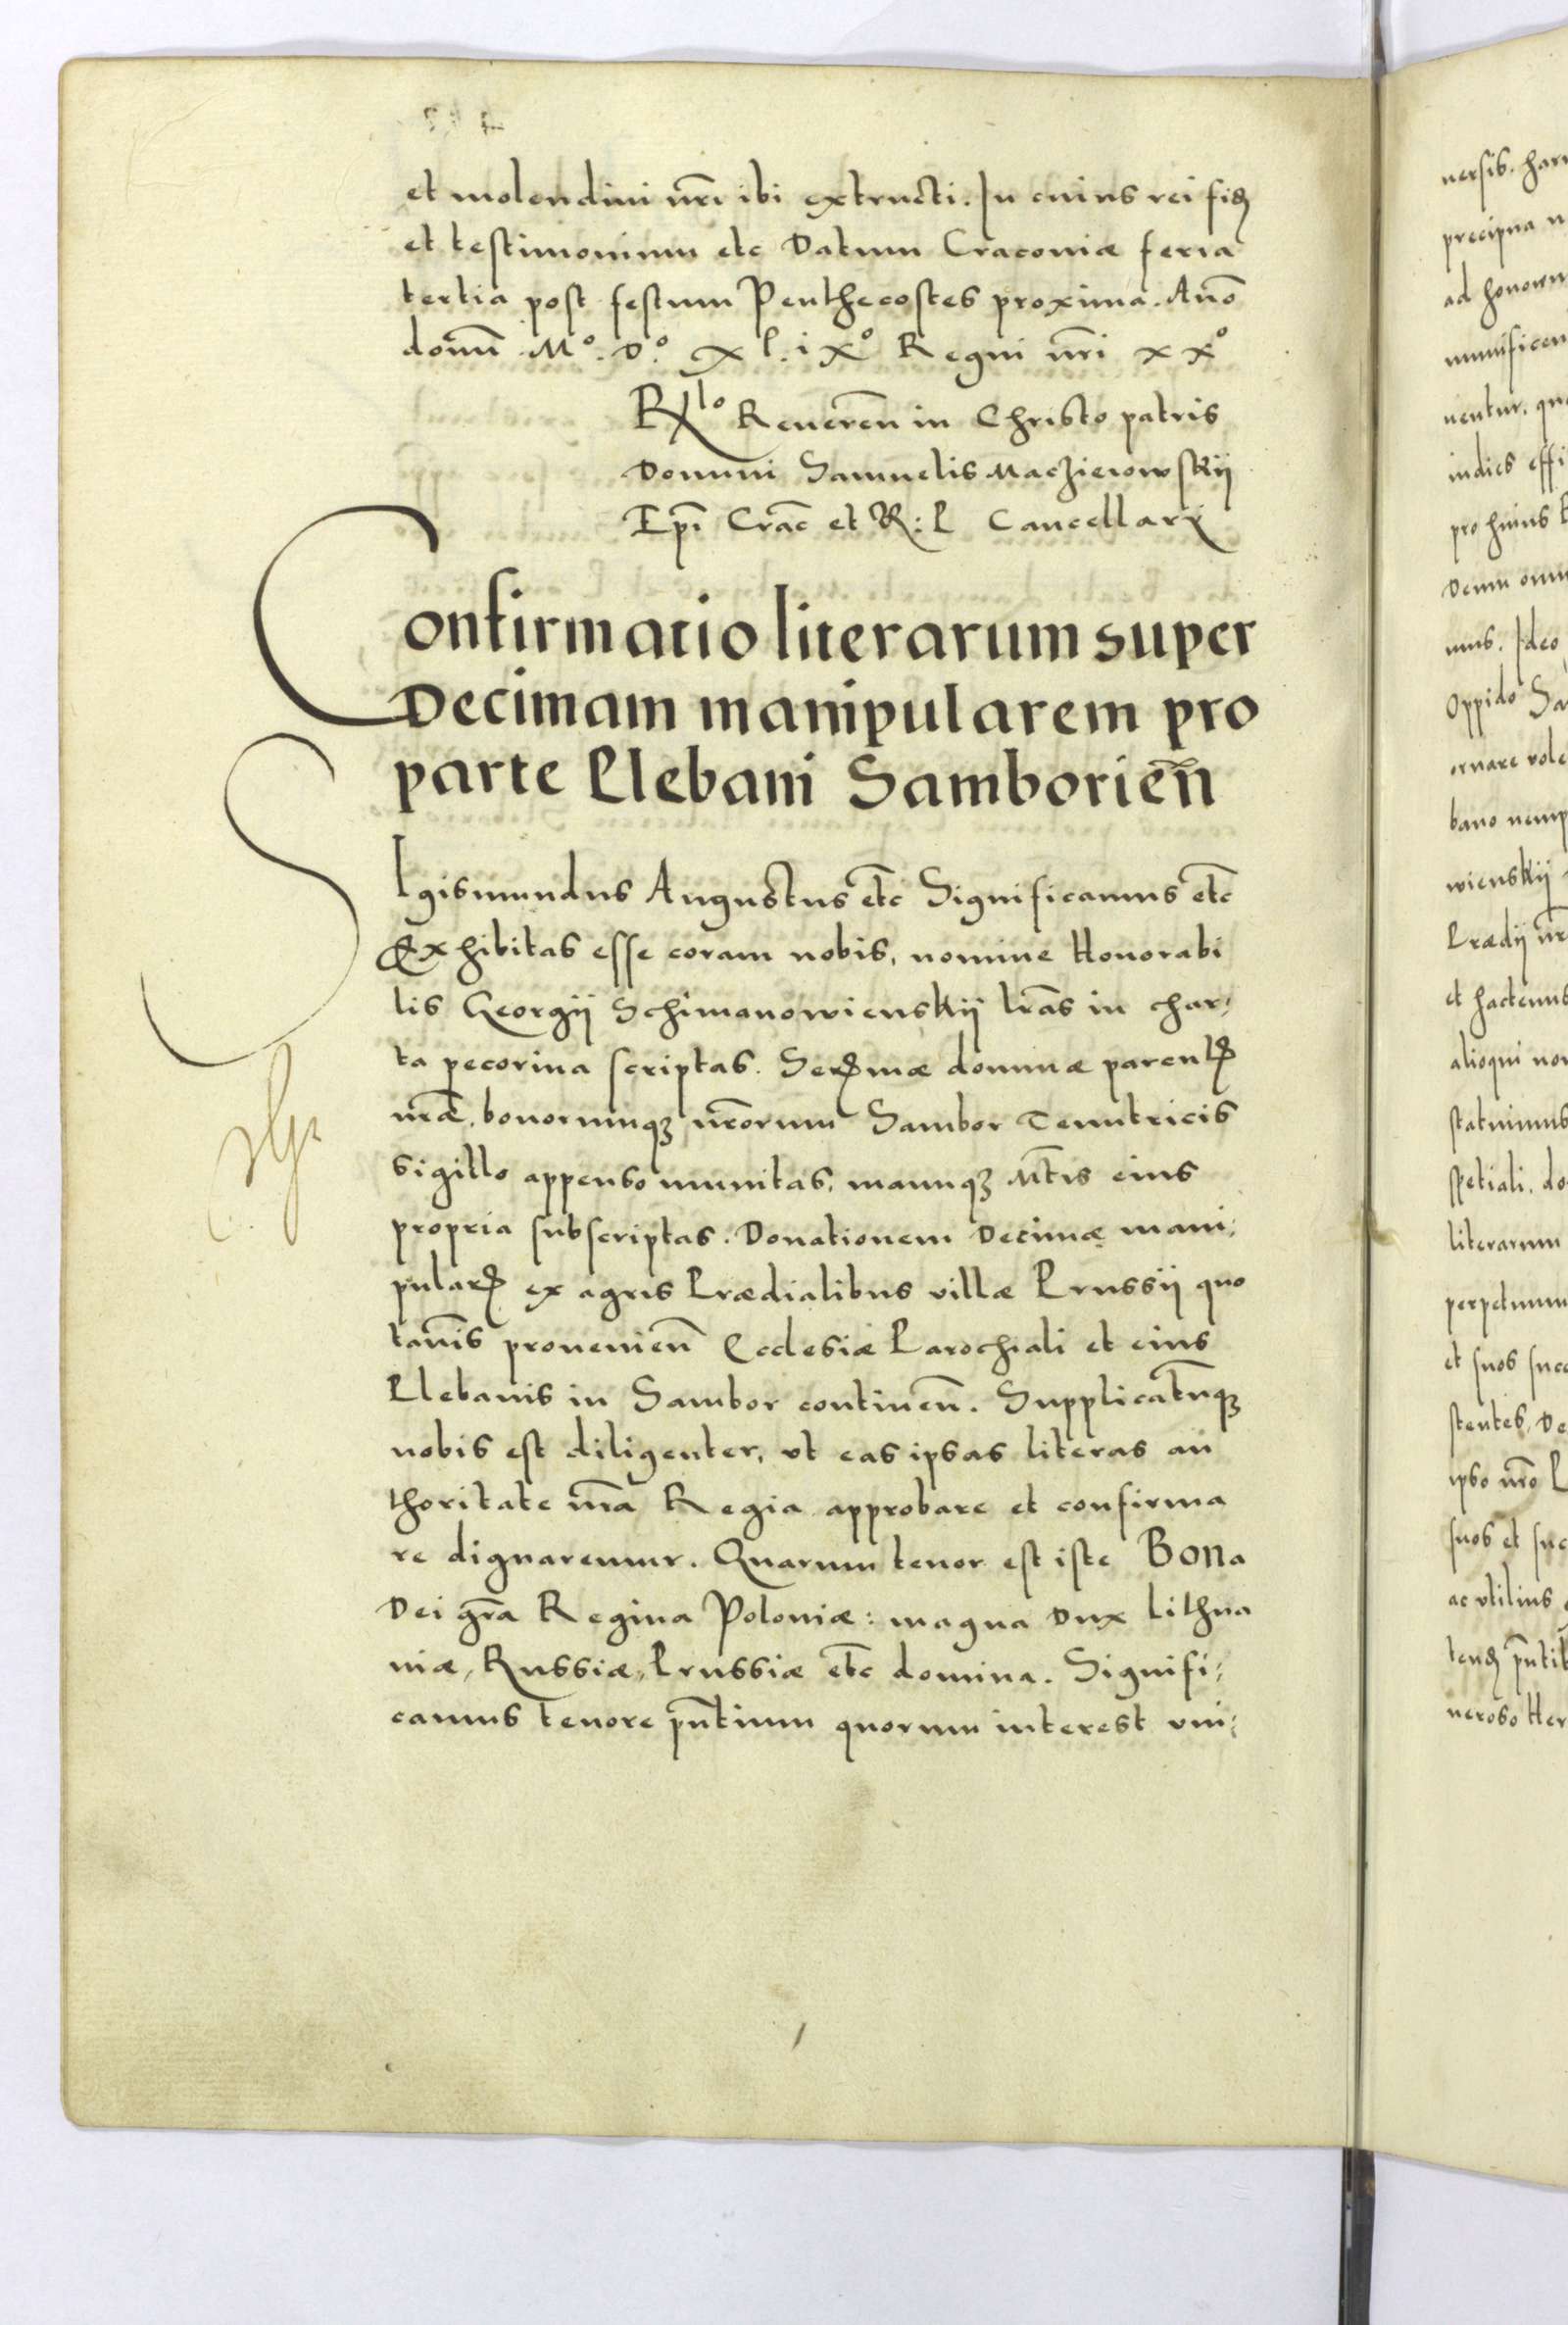 et molendini nr̃i ibi extructi. In cuius rei fid
et testimonium etc Datum Cracoviæ feria
tertia post festum Penthecostes proxima. Anõ
domñ Mº. Dº. xl.ixº Regni nr̃i xxº
Rlº Reveren̄ in Christo patris
Domini Samuelis Maczieiowskij
Epĩ Crac̃ et R: P Cancellarij
Confirmatio literarum super
Decimam manipularem pro
parte Plebani Samborien̄
SIgismundus Augustus et̃c Significamus et̃c
Exhibitas esse coram nobis, nomine Honorabi
lis Georgij Schimanowienskij lr̃as in char⸗
ta pecorina scriptas. Serꝭmæ dominæ parentꝭ
nr̃æ, bonorumqꝫ nr̃orum Sambor Tenutricis
sigillo appenso munitas, manuqꝫ Mt̃is eius
propria subscriptas. Donationem Decimæ mani⸗
pularꝭ ex agris Prædialibus villæ Prussij quo
tan̄is provenien̄ Ecclesiæ Parochiali et eius
Plebanis in Sambor continen̄. Supplicatũqꝫ
nobis est diligenter, vt eas ipsas literas au
thoritate nr̃a Regia approbare et confirma
re dignaremur. Quarum tenor est iste Bona
Dei gr̃a Regina Poloniæ: magna Dux Lithua
niæ, Russiæ, Prussiæ et̃c domina. Signifi⸗
camus tenore pñtium quorum interest vni⸗
versis. har
precipua
ad honorum
munificen
ventur. qu
indies effi
pro huius
Demu omn
mus. Ideo
Oppido Sa
ornare vole
bano nemp
wienskij
Prædij nr̃
et hactenus
alioqui non
statuimus
spetiali. do
literarum
perpetuum
et suos succ
stentes, De
ipso nr̃o P
suos et suc
ac vtilius
tenꝭ pñtib
neroso Her